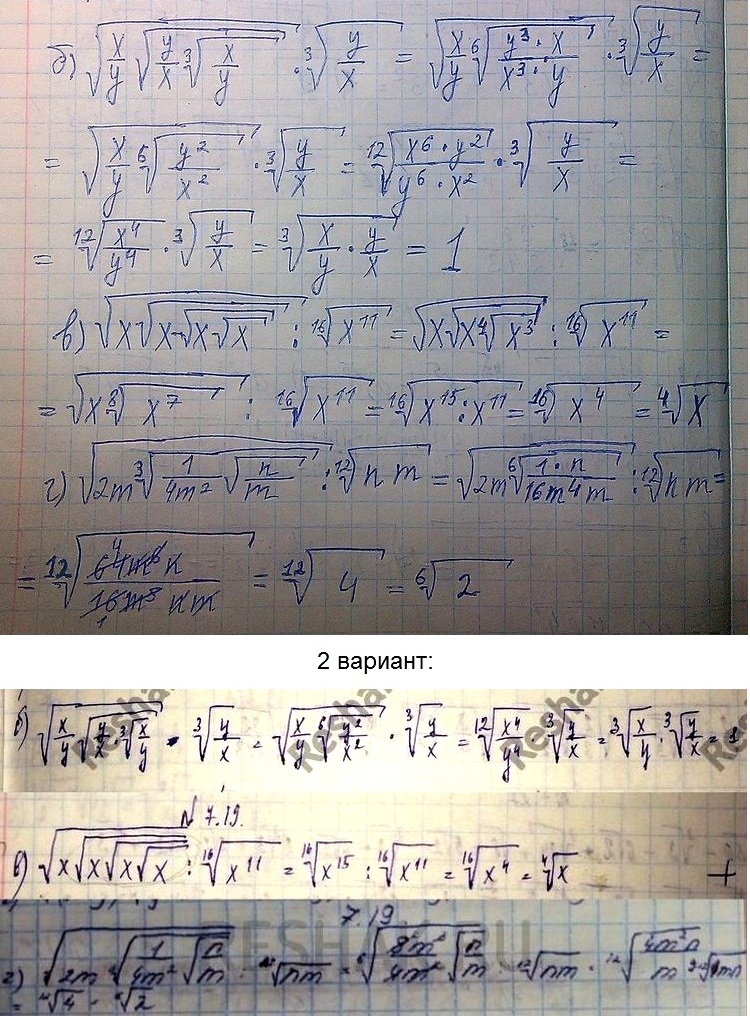 б) √(x/y √(y/x ∛(x/y))) · ∛(y/x) = √(x/y ⁶√(y³·x / x³·y)) · ∛(y/x) =
= √(x/y ⁶√(y²/x²)) · ∛(y/x) = ¹²√(x⁶·y² / y⁶·x²) · ∛(y/x) =
= ¹²√(x⁴/y⁴) · ∛(y/x) = ∛(x/y · y/x) = 1
в) √(x√(x√(x√x))) : ¹⁶√(x¹¹) = √(x√(x ⁴√(x³))) : ¹⁶√(x¹¹) =
= √(x ⁸√(x⁷)) : ¹⁶√(x¹¹) = ¹⁶√(x¹⁵ : x¹¹) = ¹⁶√(x⁴) = ⁴√x
г) √(2m ∛(1/4m² √(n/m))) : ¹²√(nm) = √(2m ⁶√(1·n / 16m⁴m)) : ¹²√(nm) =
= ¹²√(64m⁶n / 16m⁵ nm) = ¹²√4 = ⁶√2
2 вариант:
б) √(x/y √(y/x · ∛(x/y))) · ∛(y/x) = √(x/y ⁶√(y²/x²)) · ∛(y/x) = ¹²√(x⁴/y⁴) · ∛(y/x) = ∛(x/y) · ∛(y/x) = 1
N 7.19.
в) √(x√(x√(x√x))) : ¹⁶√(x¹¹) = ¹⁶√(x¹⁵) : ¹⁶√(x¹¹) = ¹⁶√(x⁴) = ⁴√x +
7.19.
RESHAK.RU
г) √(2m ∛(1/4m² √(n/m))) : ¹²√(nm) = ⁶√(8m³/4m² √(n/m)) : ¹²√(nm)
= ¹²√4 = ⁶√2